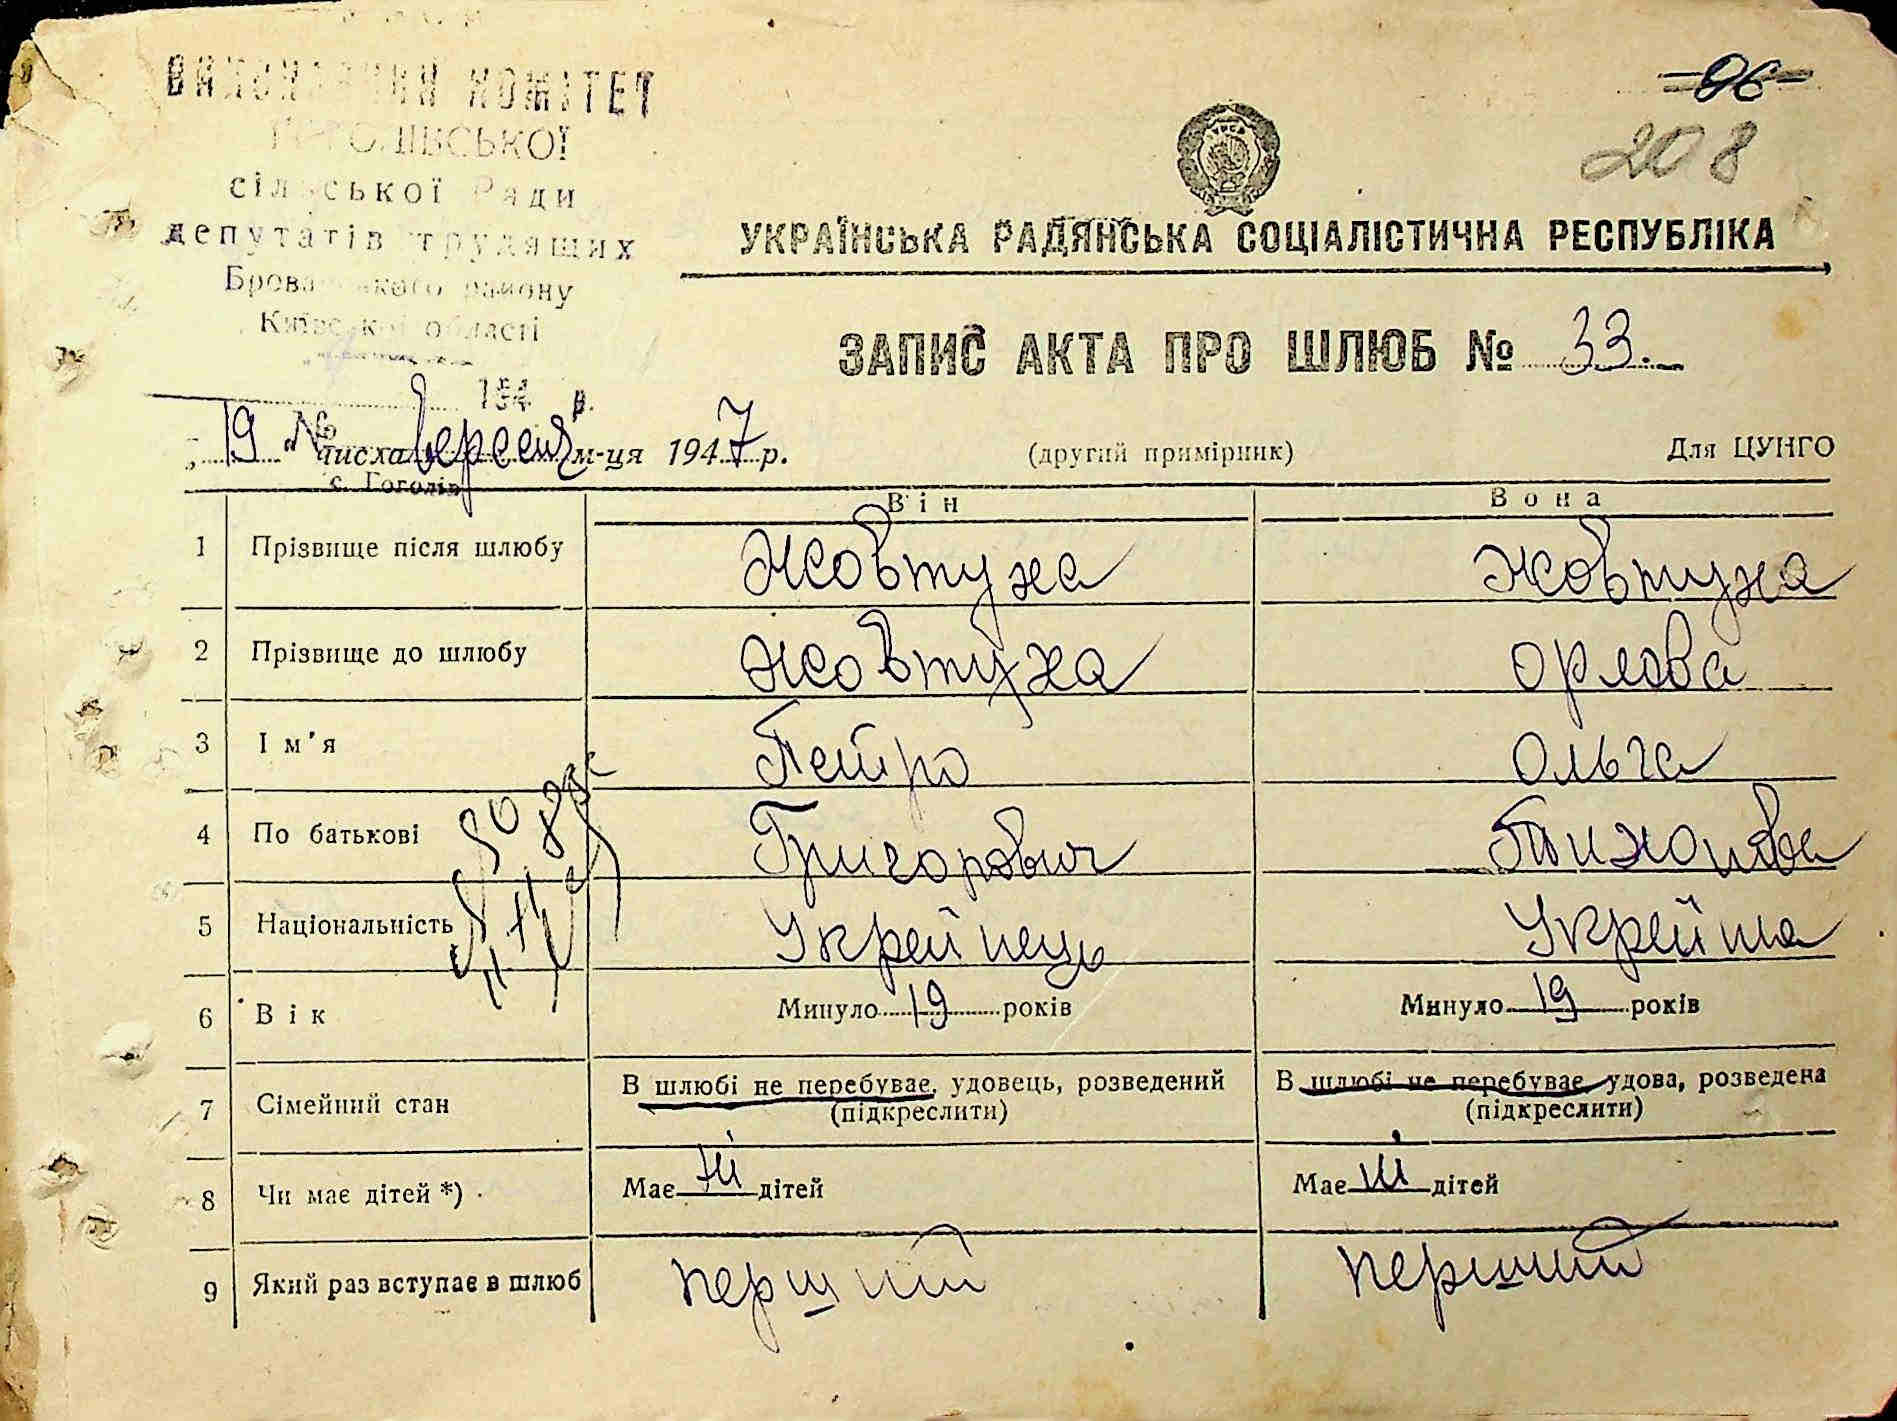 ВИКОНАВЧИЙ КОМІТЕТ
ГОГОЛІВСЬКОЇ
сільської Ради
депутатів трудящих
Броварського району
Київської області
194 р.
№
с. Гоголів
96
208
УРСР
УКРАЇНСЬКА РАДЯНСЬКА СОЦІАЛІСТИЧНА РЕСПУБЛІКА
ЗАПИС АКТА ПРО ШЛЮБ № 33.
„19" числа вересня м-ця 1947 р.
(другий примірник)
Для ЦУНГО
Він Вона
1 Прізвище після шлюбу Жовтуха Жовтуха
2 Прізвище до шлюбу Жовтуха Орлова
3 Ім'я Петро Ольга
4 По батькові Григорович Тихонівна
5 Національність Українець Українка
6 Вік Минуло 19 років Минуло 19 років
7 Сімейний стан В шлюбі не перебуває, удовець, розведений В шлюбі не перебуває, удова, розведена
(підкреслити) (підкреслити)
8 Чи має дітей *) Має ні дітей Має ні дітей
9 Який раз вступає в шлюб перший перший